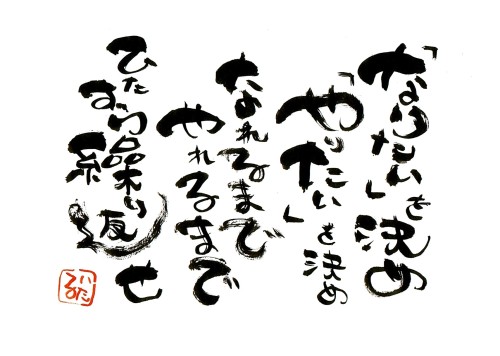 「なりたい」を決め
「やりたい」を決め
なれるまで
やれるまで
ひたすら繰り返せ